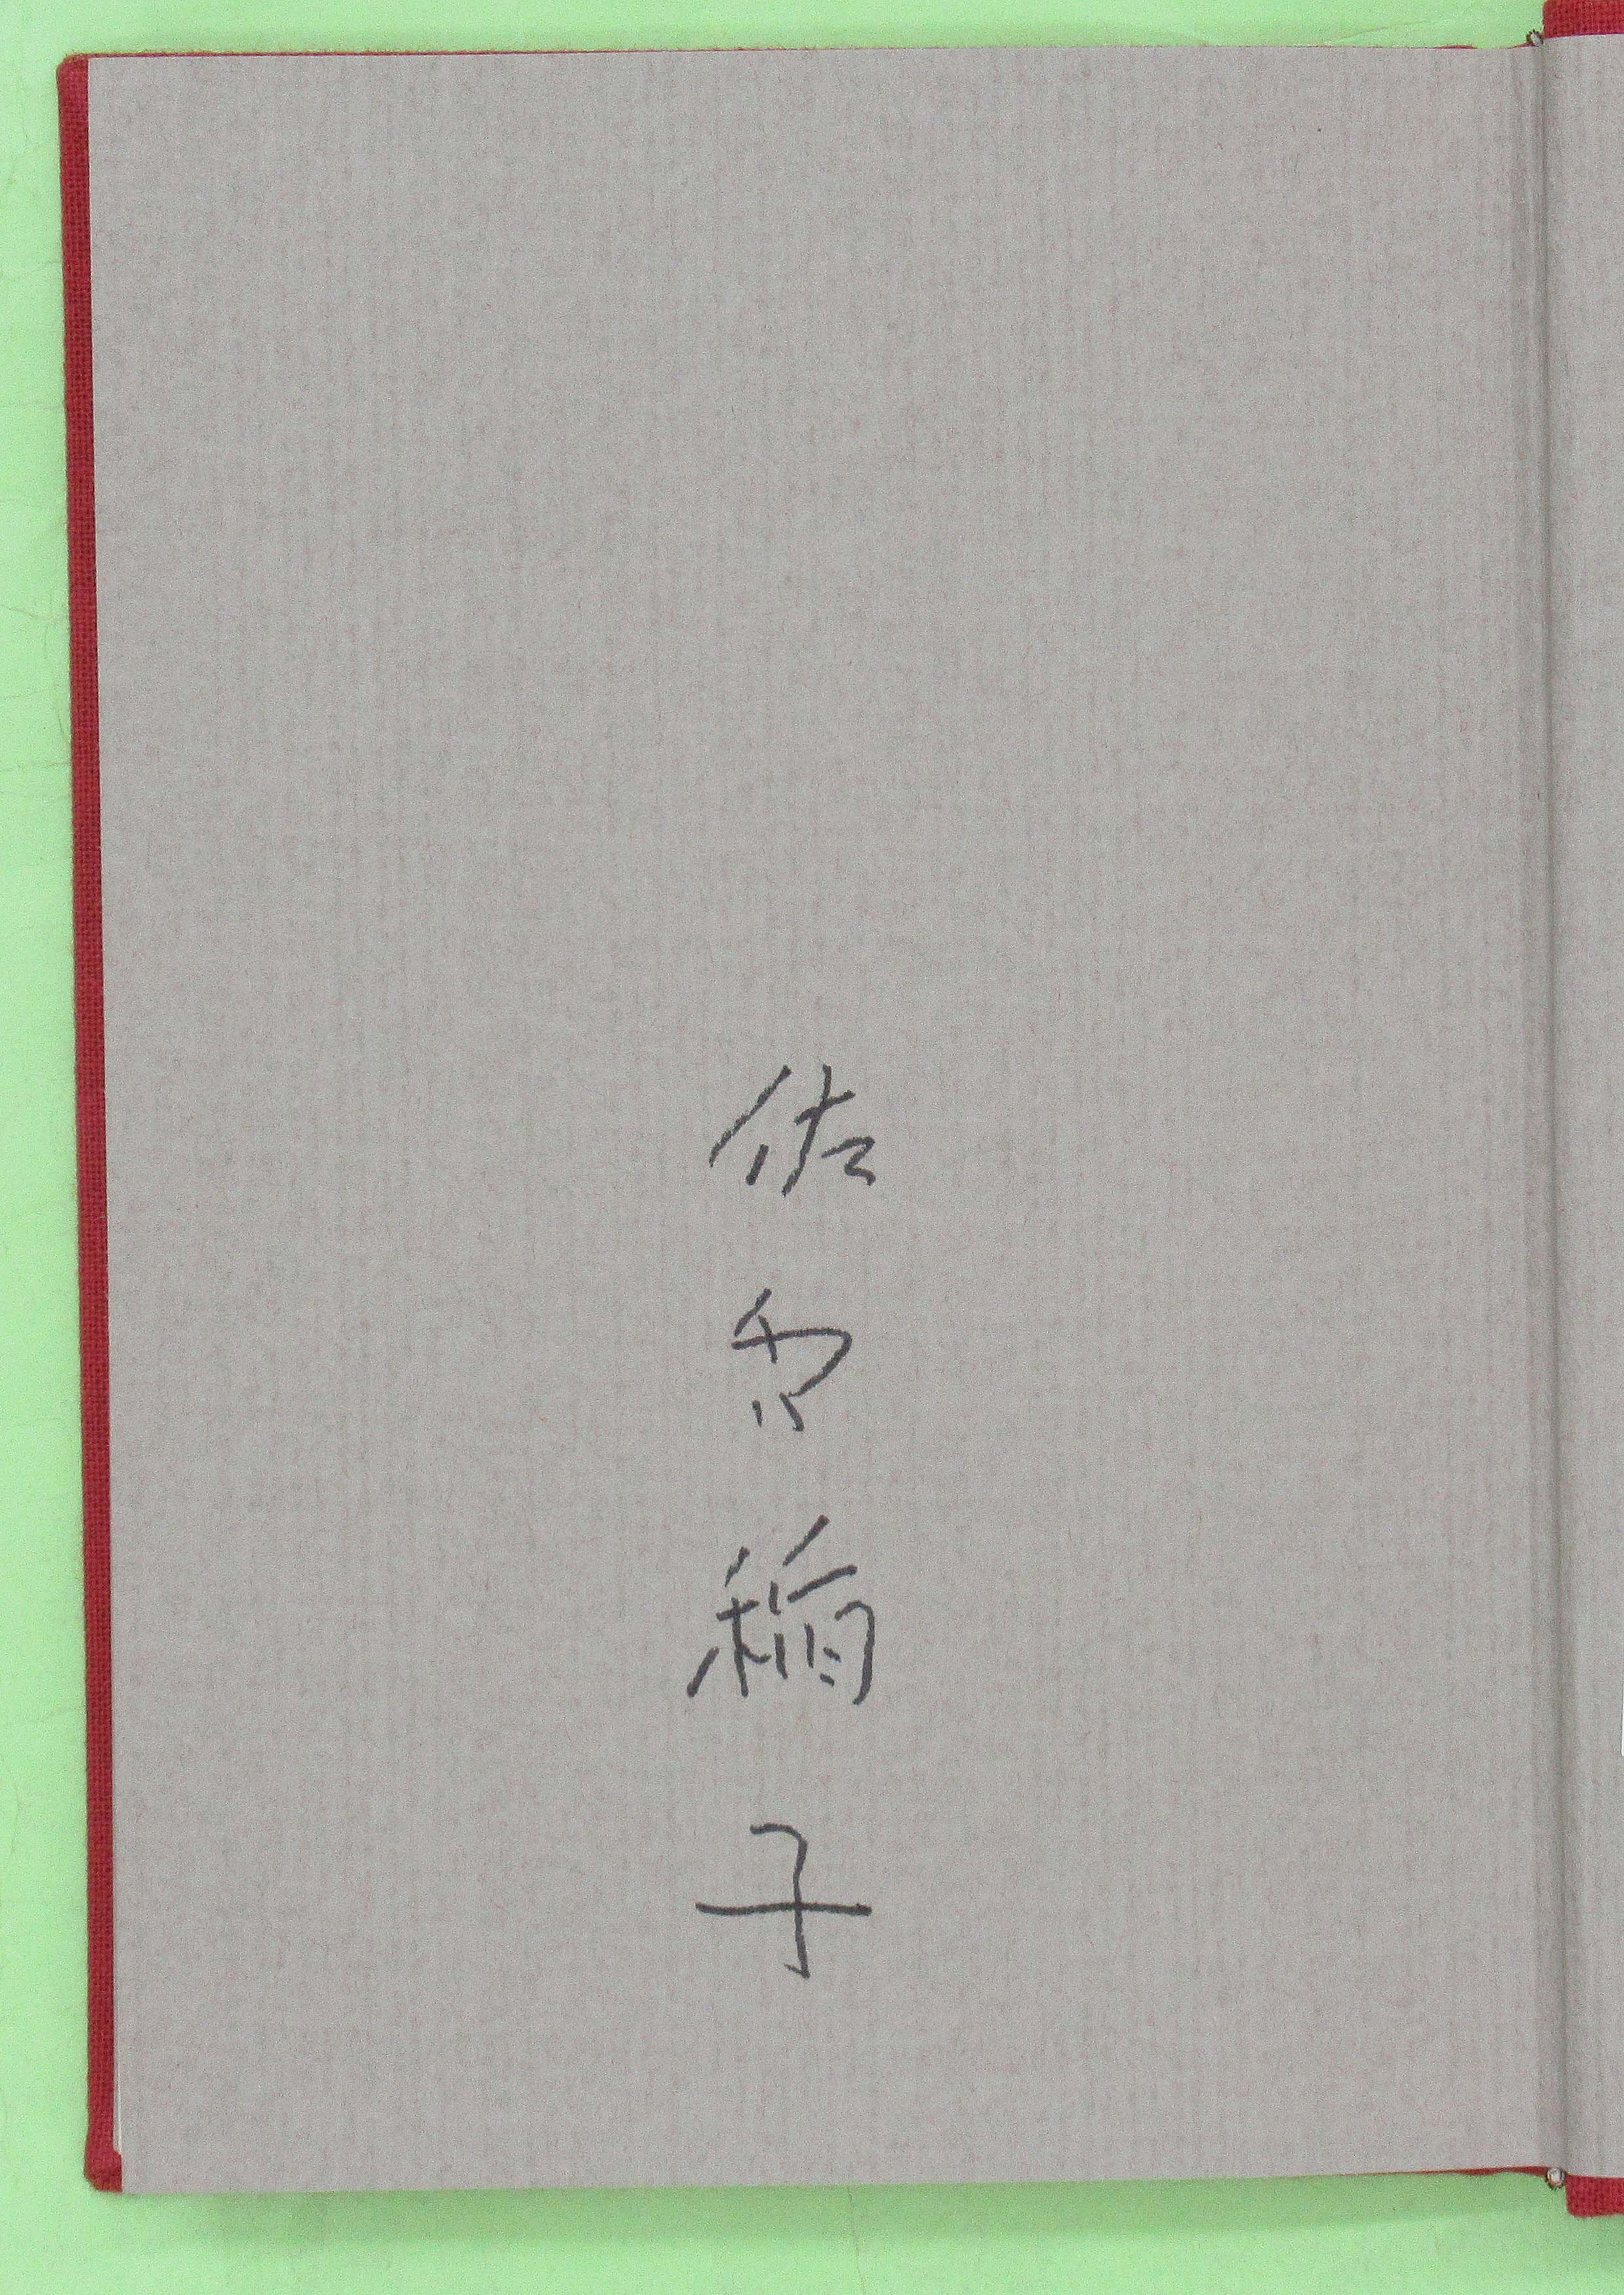 佐多稲子